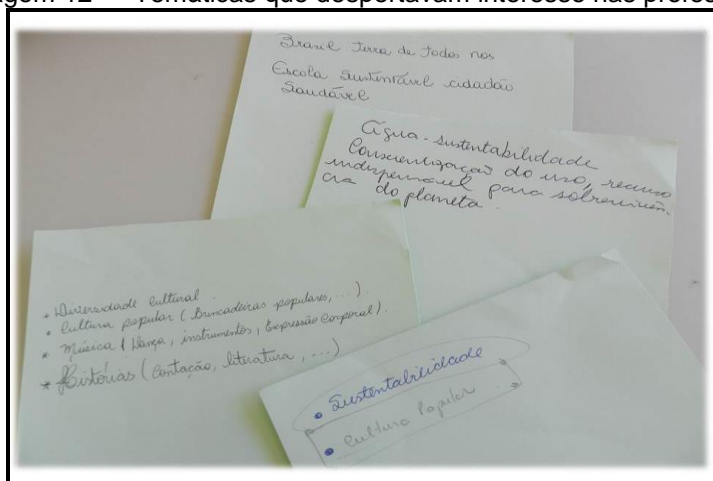 Temáticas que despertavam interesse nas
Brasil Terra de todos nós
Escola Sustentável cidadão
Saudável
Água - sustentabilidade
Conscientização do uso, recurso
indispensável para sobrevivên-
cia do planeta.
• Diversidade Cultural.
• Cultura popular (Brincadeiras populares, ...).
* Música (Dança, instrumentos, Expressão Corporal).
* Histórias (Contação, literatura, ...)
• Sustentabilidade
• Cultura Popular